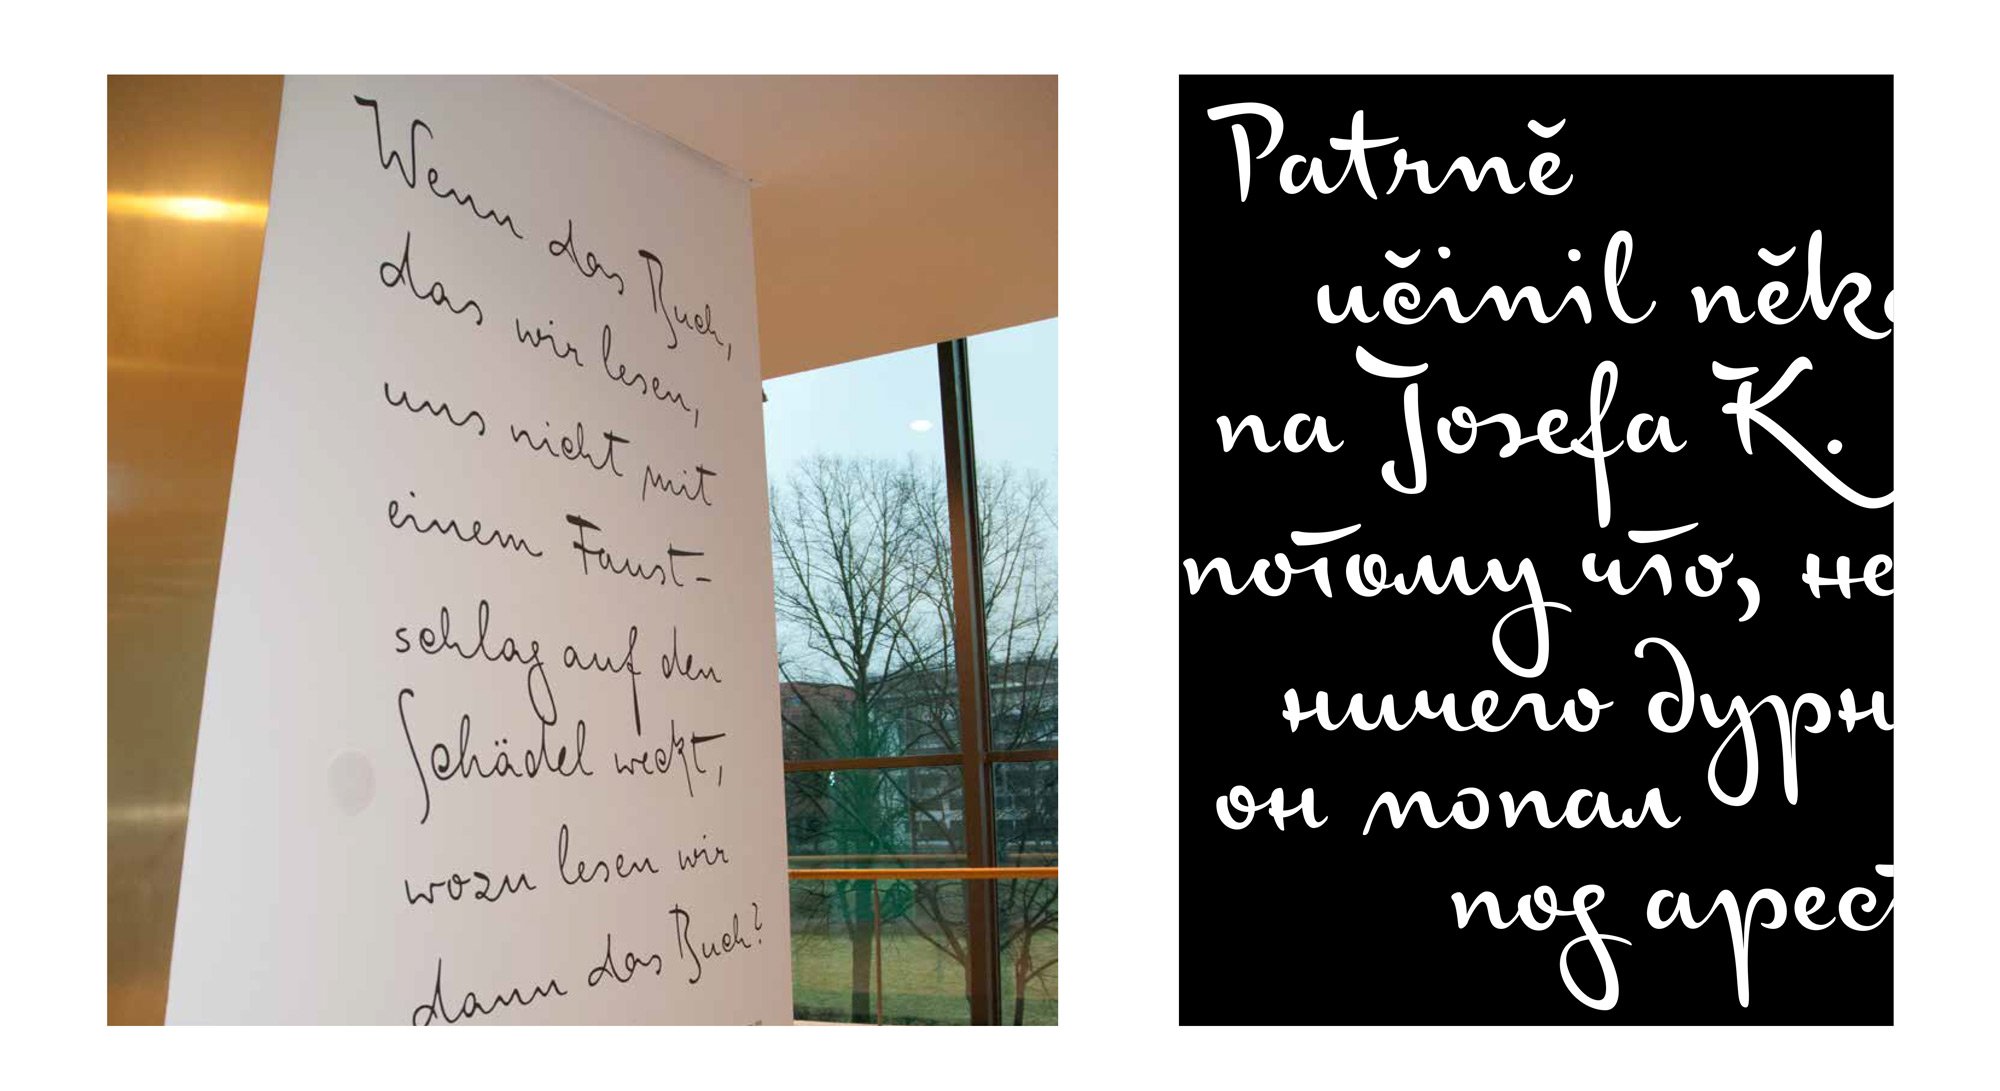 Wenn das Buch,
das wir lesen,
uns nicht mit
einem Faust-
schlag auf den
Schädel weckt,
wozu lesen wir
dann das Buch?
Patrně
učinil něk
na Josefa K.
потому что, не
ничего дурн
он попал
под арест